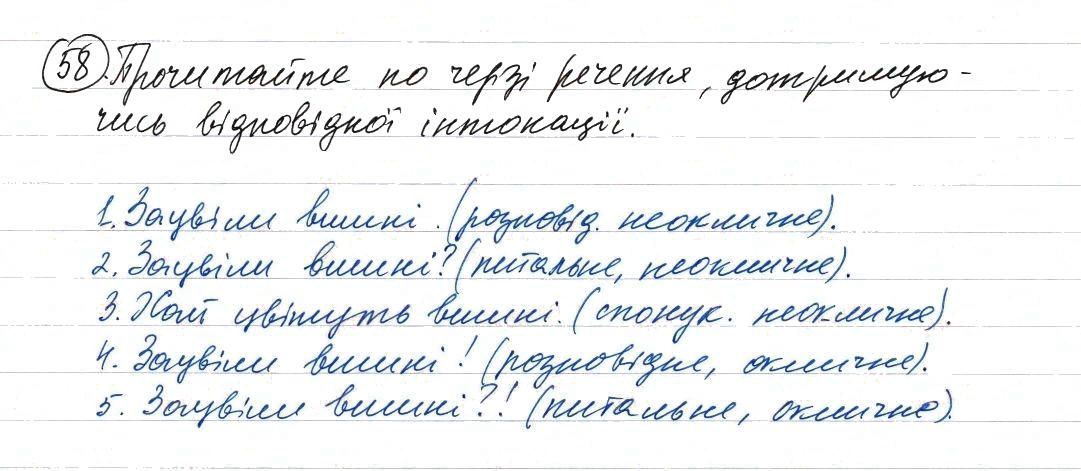 58. Прочитайте по черзі речення, дотримую-
чись відповідної інтонації.
1. Зацвіли вишні. (розповід. неокличне).
2. Зацвіли вишні? (питальне, неокличне).
3. Хай цвітуть вишні. (спонук. неокличне).
4. Зацвіли вишні! (розповідне, окличне).
5. Зацвіли вишні?! (питальне, окличне).